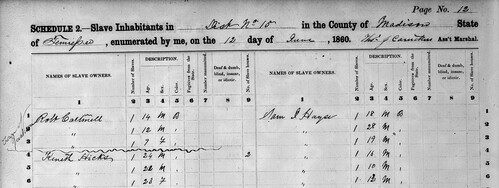 Page No. 12
SCHEDULE 2.—Slave Inhabitants in Dist No 15 in the County of Madison State
of Tennessee, enumerated by me, on the 12 day of June, 1860. Thos J Carruthers Ass't Marshal.
NAMES OF SLAVE OWNERS. Number of Slaves. DESCRIPTION. Age. Sex. Color. Fugitives from the State. Number manumitted. Deaf & dumb, blind, insane, or idiotic. NAMES OF SLAVE OWNERS. Number of Slaves. DESCRIPTION. Age. Sex. Color. Fugitives from the State. Number manumitted. Deaf & dumb, blind, insane, or idiotic.
1 2 3 4 5 6 7 8 9 1 2 3 4 5 6 7 8
1 Robt Cartmell 1 14 M B Sam J Hays 1 18 M B
2 " 1 12 M " 1 28 M
3 " 1 7 F " 1 19 M
4 Kenneth Hicks 1 24 M 2 " 1 16 M
" 1 22 M " 1 10 M
" 1 23 F " 1 12 M